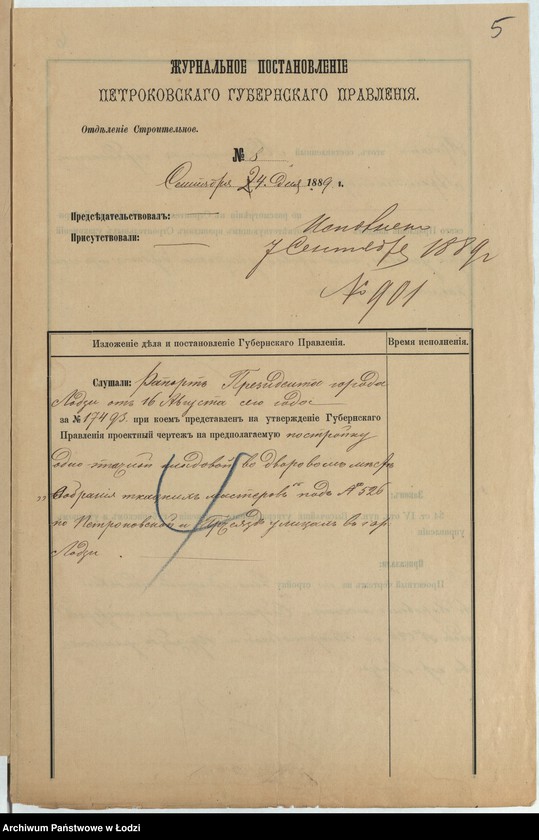 5
ЖУРНАЛЬНОЕ ПОСТАНОВЛЕНІЕ
ПЕТРОКОВСКАГО ГУБЕРНСКАГО ПРАВЛЕНІЯ.
Отдѣленіе Строительное.
№ 8
Сентября 4 дня 1889 г.
Предсѣдательствовалъ:
Присутствовали:
Исполнено
7 Сентября 1889 г
№ 901
Изложеніе дѣла и постановленіе Губернскаго Правленія.
Время исполненія.
Слушали: Рапортъ Президента города
Лодзи отъ 16 Августа сего года
за № 17493 при коемъ представленъ на утвержденіе Губернскаго
Правленія проектный чертежъ на предполагаемую постройку
одно этажной во дворовомъ мѣстѣ
„Собранія ткацкихъ мастеровъ" подъ № 526
по Петроковской и улицамъ въ гор.
Лодзи.
Archiwum Państwowe w Łodzi